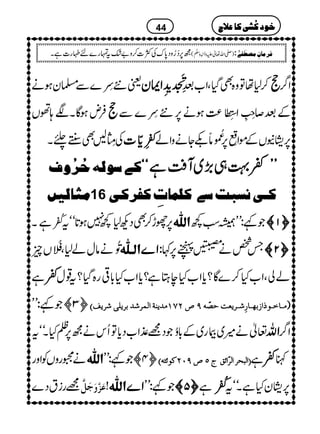 خود کُشی کا علاج
44
فرمانِ مصطفےٰ: (صلی اللہ تعالیٰ علیہ والہ وسلم) مجھ پر دُرُودِ پاک کی کثرت کرو بے شک یہ تمہارے لئے طہارت ہے۔
حج اگر کر لیا تھا تو وہ بھی گیا، اب بعدِ تجدیدِ ایمان یعنی نئے سِرے سے مسلمان ہونے
کے بعد صاحبِ استِطاعت ہونے پر نئے سِرے سے حج فرض ہوگا۔ لگے ہاتھوں
پریشانیوں کے مواقع پر عُمُوماً بکے جانے والے کفریات کی مثالیں بھی سنتے چلئے۔
”کفر بہت ہی بڑی آفت ہے“ کے سولہ حُرُوف
کی نسبت سے کلماتِ کفر کی 16 مثالیں
﴿۱﴾ جو کہے: ”ہمیشہ سب کچھ اللہ پر چھوڑ کر بھی دیکھ لیا کچھ نہیں ہوتا“ یہ کُفر ہے۔
﴿۲﴾ جس شخص نے مصیبتیں پہنچنے پر کہا: اے اللہ تُو نے مال لے لیا، فلاں چیز
لے لی، اب کیا کرے گا؟ یا اب کیا چاہتا ہے؟ یا اب کیا باقی رہ گیا؟ یہ قول کفر ہے
(ماخوذ از بہارِ شریعت حصّہ ۹ ص ۱۷۲ مدینۃ المرشد بریلی شریف) ﴿۳﴾ جو کہے: ”
اگر اللہ تعالیٰ نے میری بیماری کے باوُجود مجھے عذاب دیا تو اُس نے مجھ پر ظلم کیا۔“ یہ
کہنا کفر ہے (البحر الرّائق ج ۵ ص ۲۰۹ کوئٹہ) ﴿۴﴾ جو کہے: ”اللہ نے مجبوروں کو اور
پریشان کیا ہے۔“ یہ کُفر ہے ﴿۵﴾ جو کہے: ”اے اللہ عَزَّوَجَلَّ! مجھے رزق دے